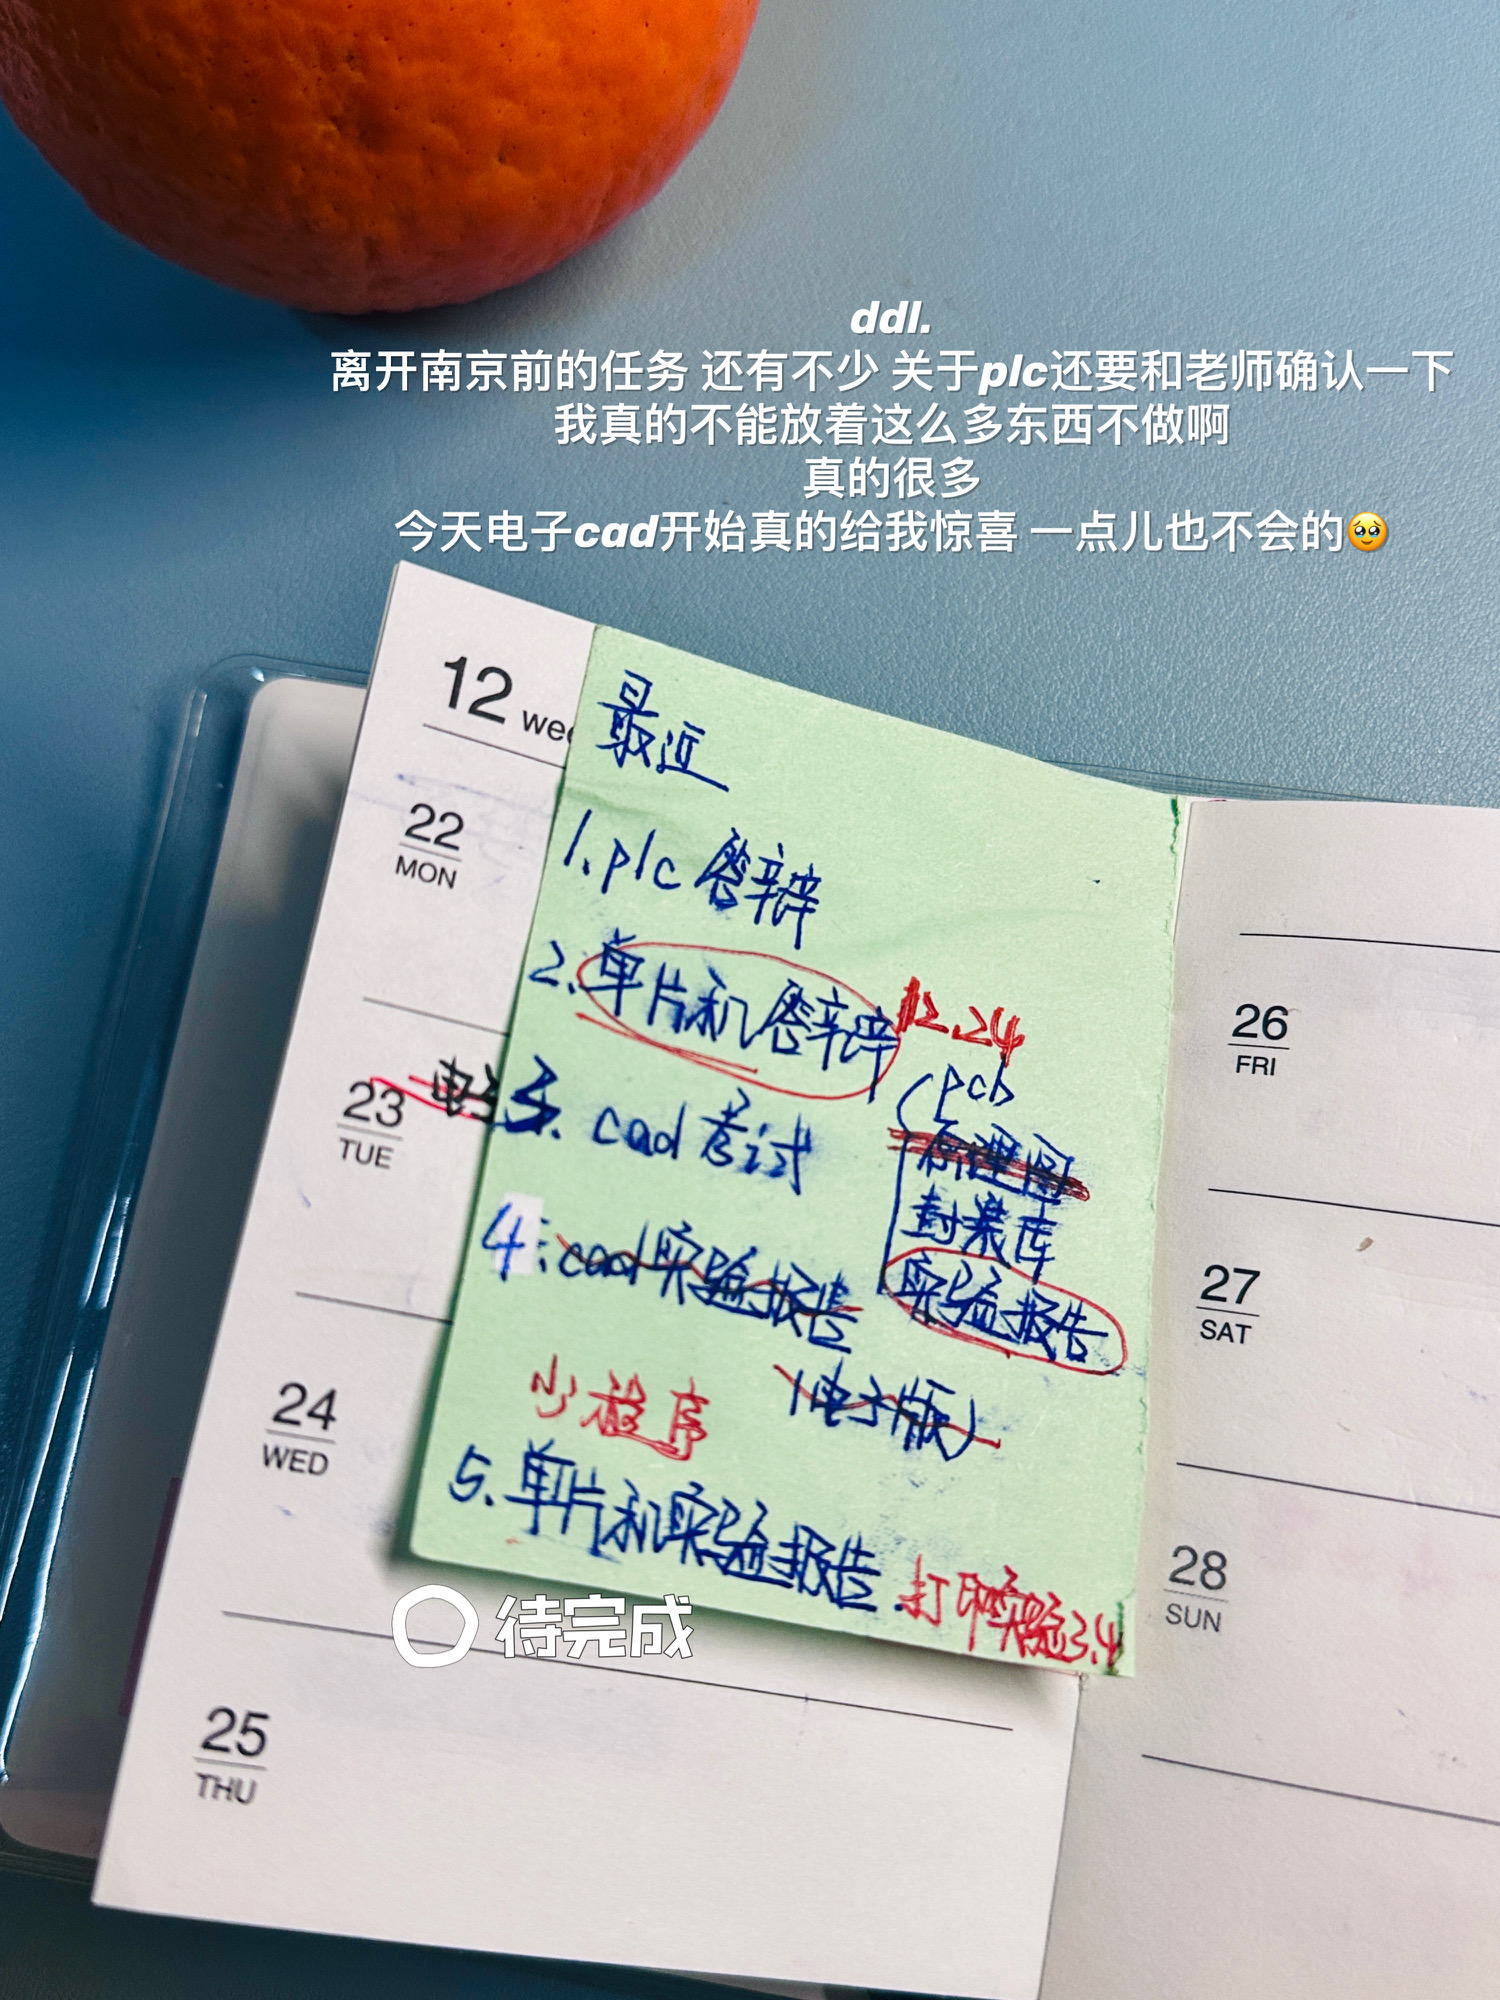 ddl.
离开南京前的任务 还有不少 关于plc还要和老师确认一下
我真的不能放着这么多东西不做啊
真的很多
今天电子cad开始真的给我惊喜 一点儿也不会的🥹
12 wee
22
MON
23
TUE
电子
24
WED
25
THU
最近
1.plc 答辩
2.单片机答辩 12.24
3. cad 考试
pcb
原理图
封装库
实验报告
4.cad实验报告
(电子版)
小程序
5.单片机实验报告.打印实验3.4
待完成
26
FRI
27
SAT
28
SUN